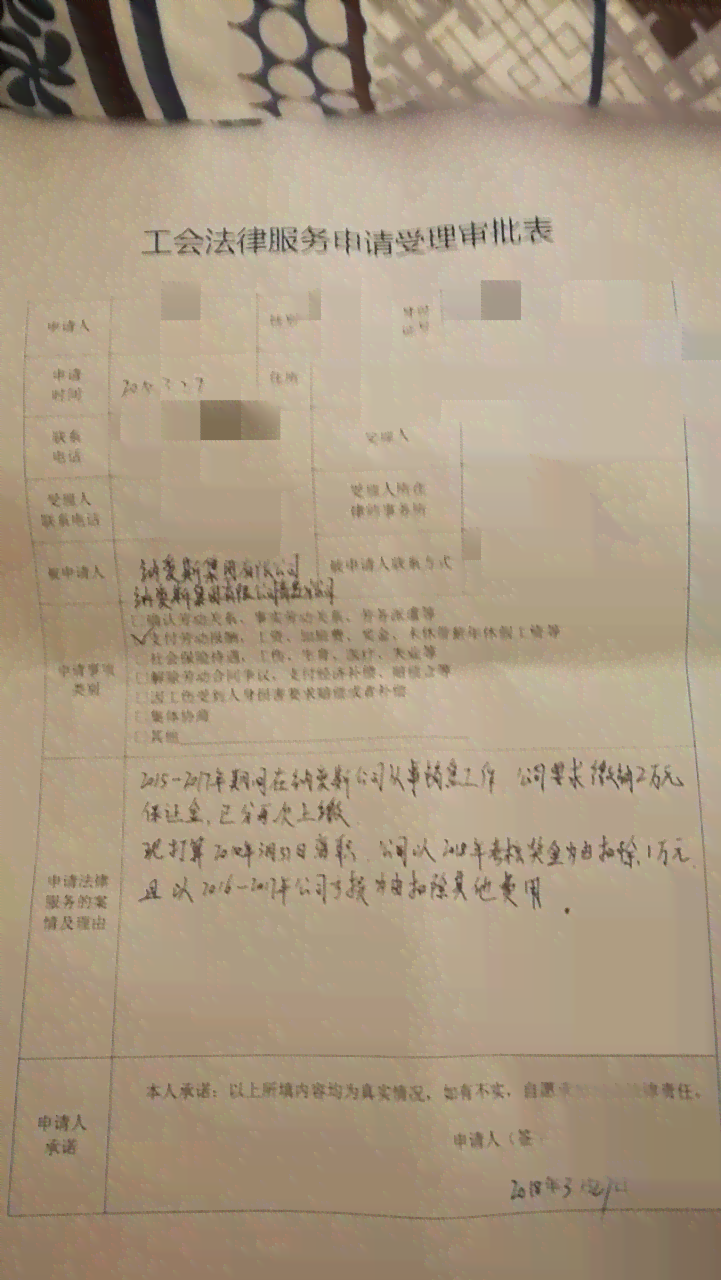 工会法律服务申请受理审批表
申请人 性别 身份证号
申请时间 住所
联系电话 受理人
受理人联系电话 受理人所在律师事务所
被申请人 纳爱斯集团有限公司 被申请人联系方式
纳爱斯集团有限公司
申请事项类别
□确认劳动关系、事实劳动关系、劳务派遣等
支付劳动报酬,工资、加班费、奖金、未休带薪年休假工资等
□社会保险待遇,工伤、生育、医疗、失业等
□解除劳动合同争议,支付经济补偿、赔偿金等
□因工伤受到人身伤害要求赔偿或者补偿
□集体协商
□其他
申请法律服务的案情及理由
2015-2017年期间在纳爱斯公司从事销售工作 公司要求缴纳2万元
保证金,已分两次上缴.
现打算2018年3月31日离职.公司以2018年考核奖金为由扣除1万元.
且以2016-2017年公司亏损为由扣除其他费用.
申请人承诺
本人承诺:以上所填内容均为真实情况,如有不实,自愿承 法律责任。
申请人(签
2018年3月27日